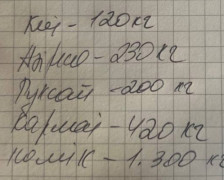 Кей - 120 кг
Адрио - 230 кг
Руксай - 200 кг
Кармай - 420 кг
Комік - 1.300 кг